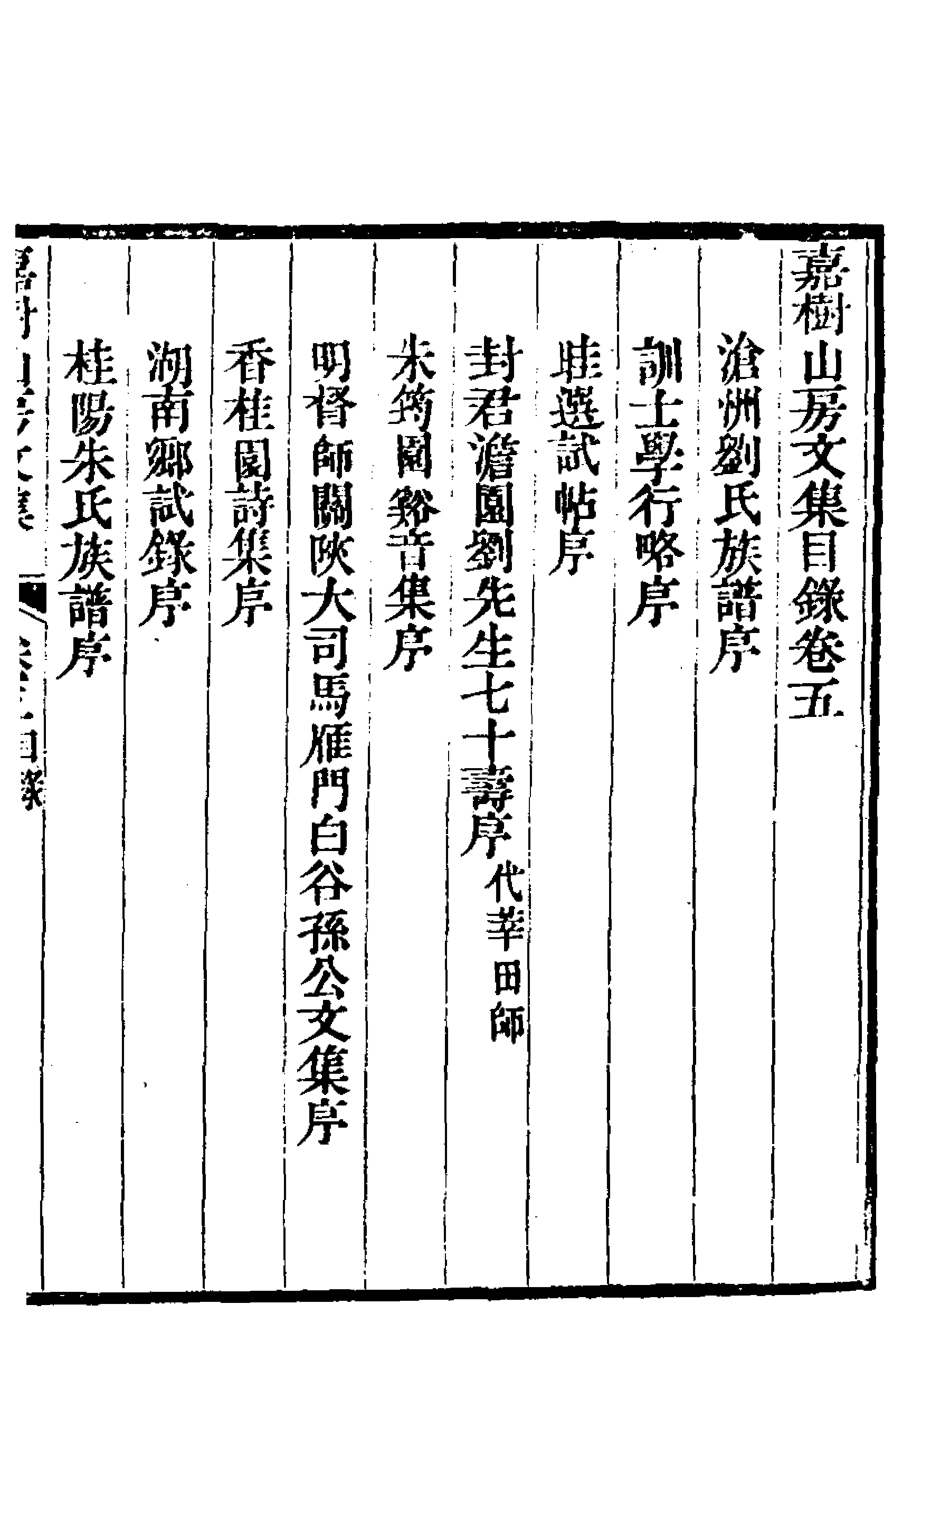 嘉樹山房文集目錄卷五
滄洲劉氏族譜序
訓士學行略序
畦選試帖序
封君澹園劉先生七十壽序 代莘田師
朱筠園谿音集序
明督師關陝大司馬雁門白谷孫公文集序
香桂園詩集序
湖南鄉試錄序
桂陽朱氏族譜序
嘉樹山房文集 卷五目錄